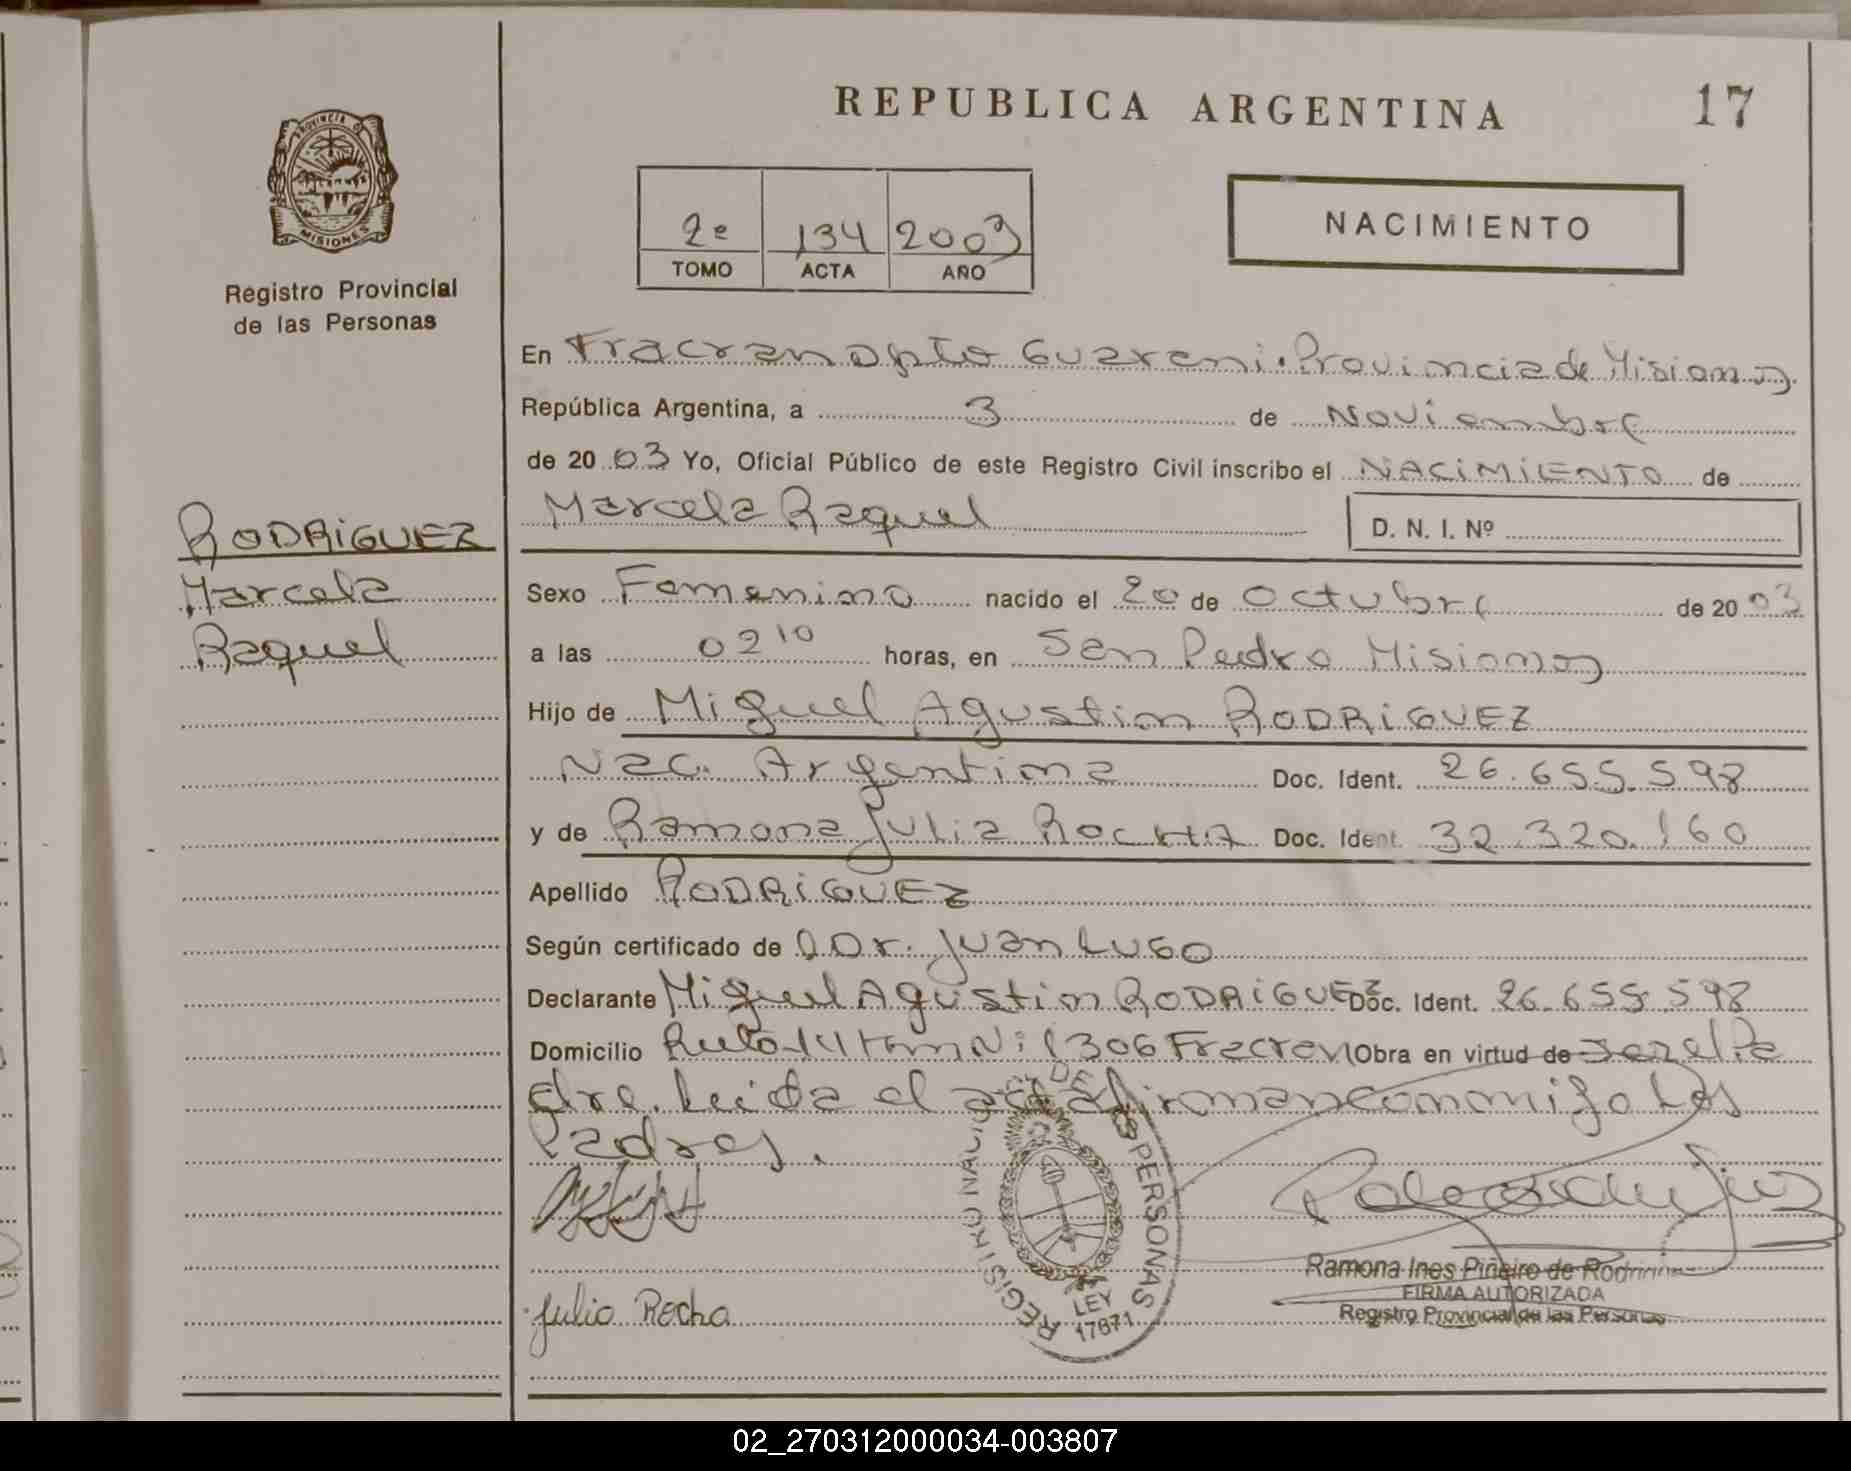 REPUBLICA ARGENTINA 17
PROVINCIA D
MISIONES
Registro Provincial
de las Personas
2e 134 2003
TOMO ACTA AÑO
NACIMIENTO
En Fracran Dpto Guarani. Provincia de Misiones
República Argentina, a 3 de Noviembre
de 2003 Yo, Oficial Público de este Registro Civil inscribo el NACIMIENTO de
Marcela Raquel D. N. I. Nº
RODRIGUEZ
Marcela
Raquel
Sexo Femenino nacido el 20 de Octubre de 2003
a las 02 10 horas, en San Pedro Misiones
Hijo de Miguel Agustin RODRIGUEZ
Nac. Argentina Doc. Ident. 26.655.598
y de Ramona Julia ROCHA Doc. Ident. 32.320.160
Apellido RODRIGUEZ
Según certificado de Dr. Juan LUGO
Declarante Miguel Agustin RODRIGUEZ Doc. Ident. 26.655.598
Domicilio Ruta 14 Km Nº 1306 Fracran Obra en virtud de ser el Pa
dre. Leida el acta firman conmigo Los
Padres.
REGISTRO NACIONAL DE PERSONAS
LEY
17671
Ramona Ines Piñeiro de Rodri
FIRMA AUTORIZADA
Registro Provincial de las Personas
Julia Rocha
02_270312000034-003807